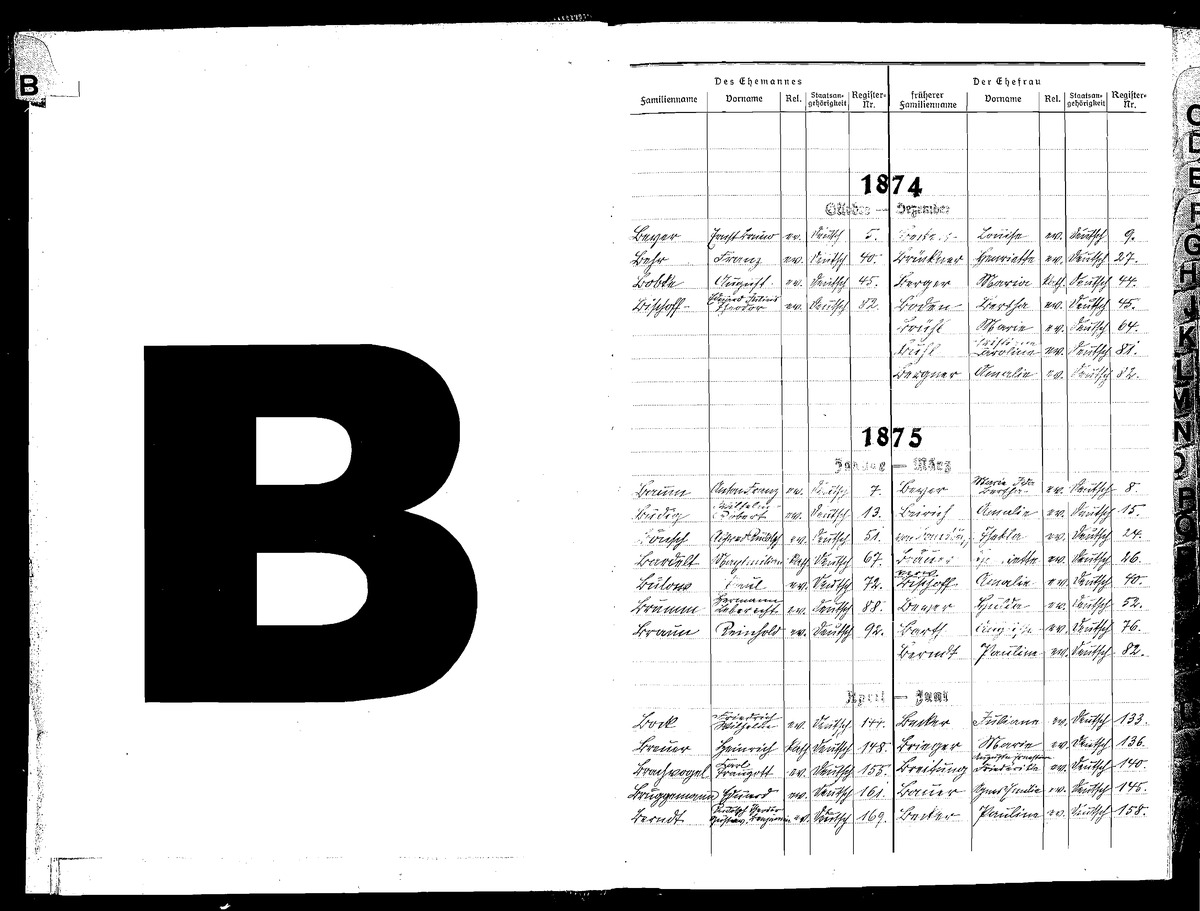 B
B
Des Ehemannes Der Ehefrau
Familienname Vorname Rel. Staatsan-gehörigkeit Register-Nr. früherer Familienname Vorname Rel. Staatsan-gehörigkeit Register-Nr.
1874
Oktober — Dezember
Beyer Ernst Bruno ev. Deutsch 5. Louise ev. Deutsch 9.
Behr Franz ev. Deutsch 40. Brückner Henriette ev. Deutsch 27.
Bobke August ev. Deutsch 45. Berger Maria kath. Deutsch 44.
Bischoff Eduard Julius Theodor ev. Deutsch 82. Boden Bertha ev. Deutsch 45.
Brühl Marie ev. Deutsch 64.
Karoline ev. Deutsch 81.
Bergner Amalie ev. Deutsch 82.
1875
Januar — März
Baum Anton Franz ev. Deutsch 7. Beyer Marie Ida Bertha ev. Deutsch 8.
Wilhelm Robert ev. Deutsch 13. Amalie ev. Deutsch 15.
Alfred Rudolf ev. Deutsch 51. ev. Deutsch 24.
Bardelt Maximilian Kath. Deutsch 67. Bräuer ev. Deutsch 26.
Bülow Paul ev. Deutsch 72. Bischoff Amalie ev. Deutsch 40.
Brumm Hermann Leberecht ev. Deutsch 88. Beyer Hulda ev. Deutsch 52.
Braun Reinhold ev. Deutsch 92. Barth ev. Deutsch 76.
Berndt Pauline ev. Deutsch 82.
April — Juni
Bock Friedrich Wilhelm ev. Deutsch 144. Becker Juliane ev. Deutsch 133.
Brauer Heinrich Kath Deutsch 148. Brieger Marie ev. Deutsch 136.
Brachvogel Karl Traugott ev. Deutsch 155. Breitung Friederike ev. Deutsch 140.
Brüggemann Eduard ev. Deutsch 161. Bauer ev. Deutsch 145.
Berndt ev. Deutsch 169. Becker Pauline ev. Deutsch 158.
C
D
E
F
G
H
J
K
L
M
N
O